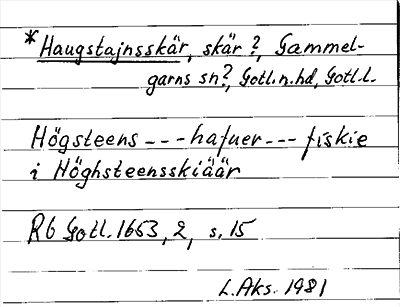 *Haugstajnsskär, skär?, Gammel-
garns sn?, Gotl. n. hd, Gotl. l.
Högsteens - - - hafuer - - - fiskie
i Höghsteensskiäär
Rb Gotl. 1653, 2, s. 15
L. Aks. 1981